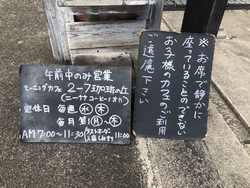 午前中のみ営業
モーニングカフェ 2-7珈琲の丘
(ニーナナコーヒーノオカ)
定休日 毎週 水 木
毎月 第1 日〜木
AM 7:00〜11:30 ラストオーダー 11:00
※お席で静かに
座っていることのできない
お子様のカフェのご利用
ご遠慮下さい